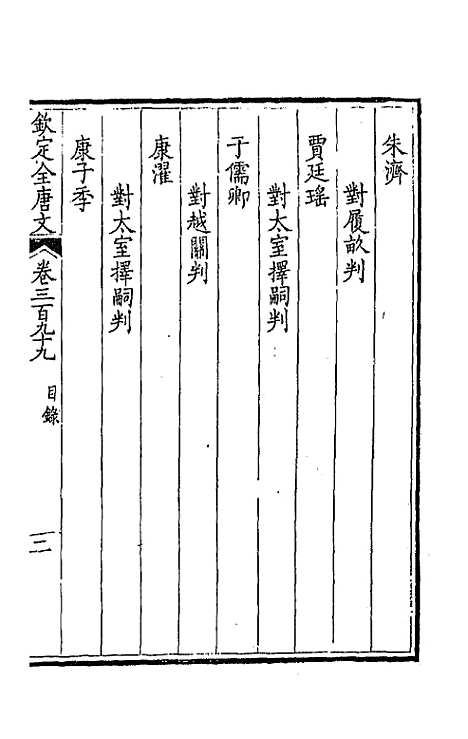 朱濟
對履畝判
賈廷瑤
對太室擇嗣判
于儒卿
對越關判
康濯
對太室擇嗣判
康子季
欽定全唐文 卷三百九十九 目錄 三